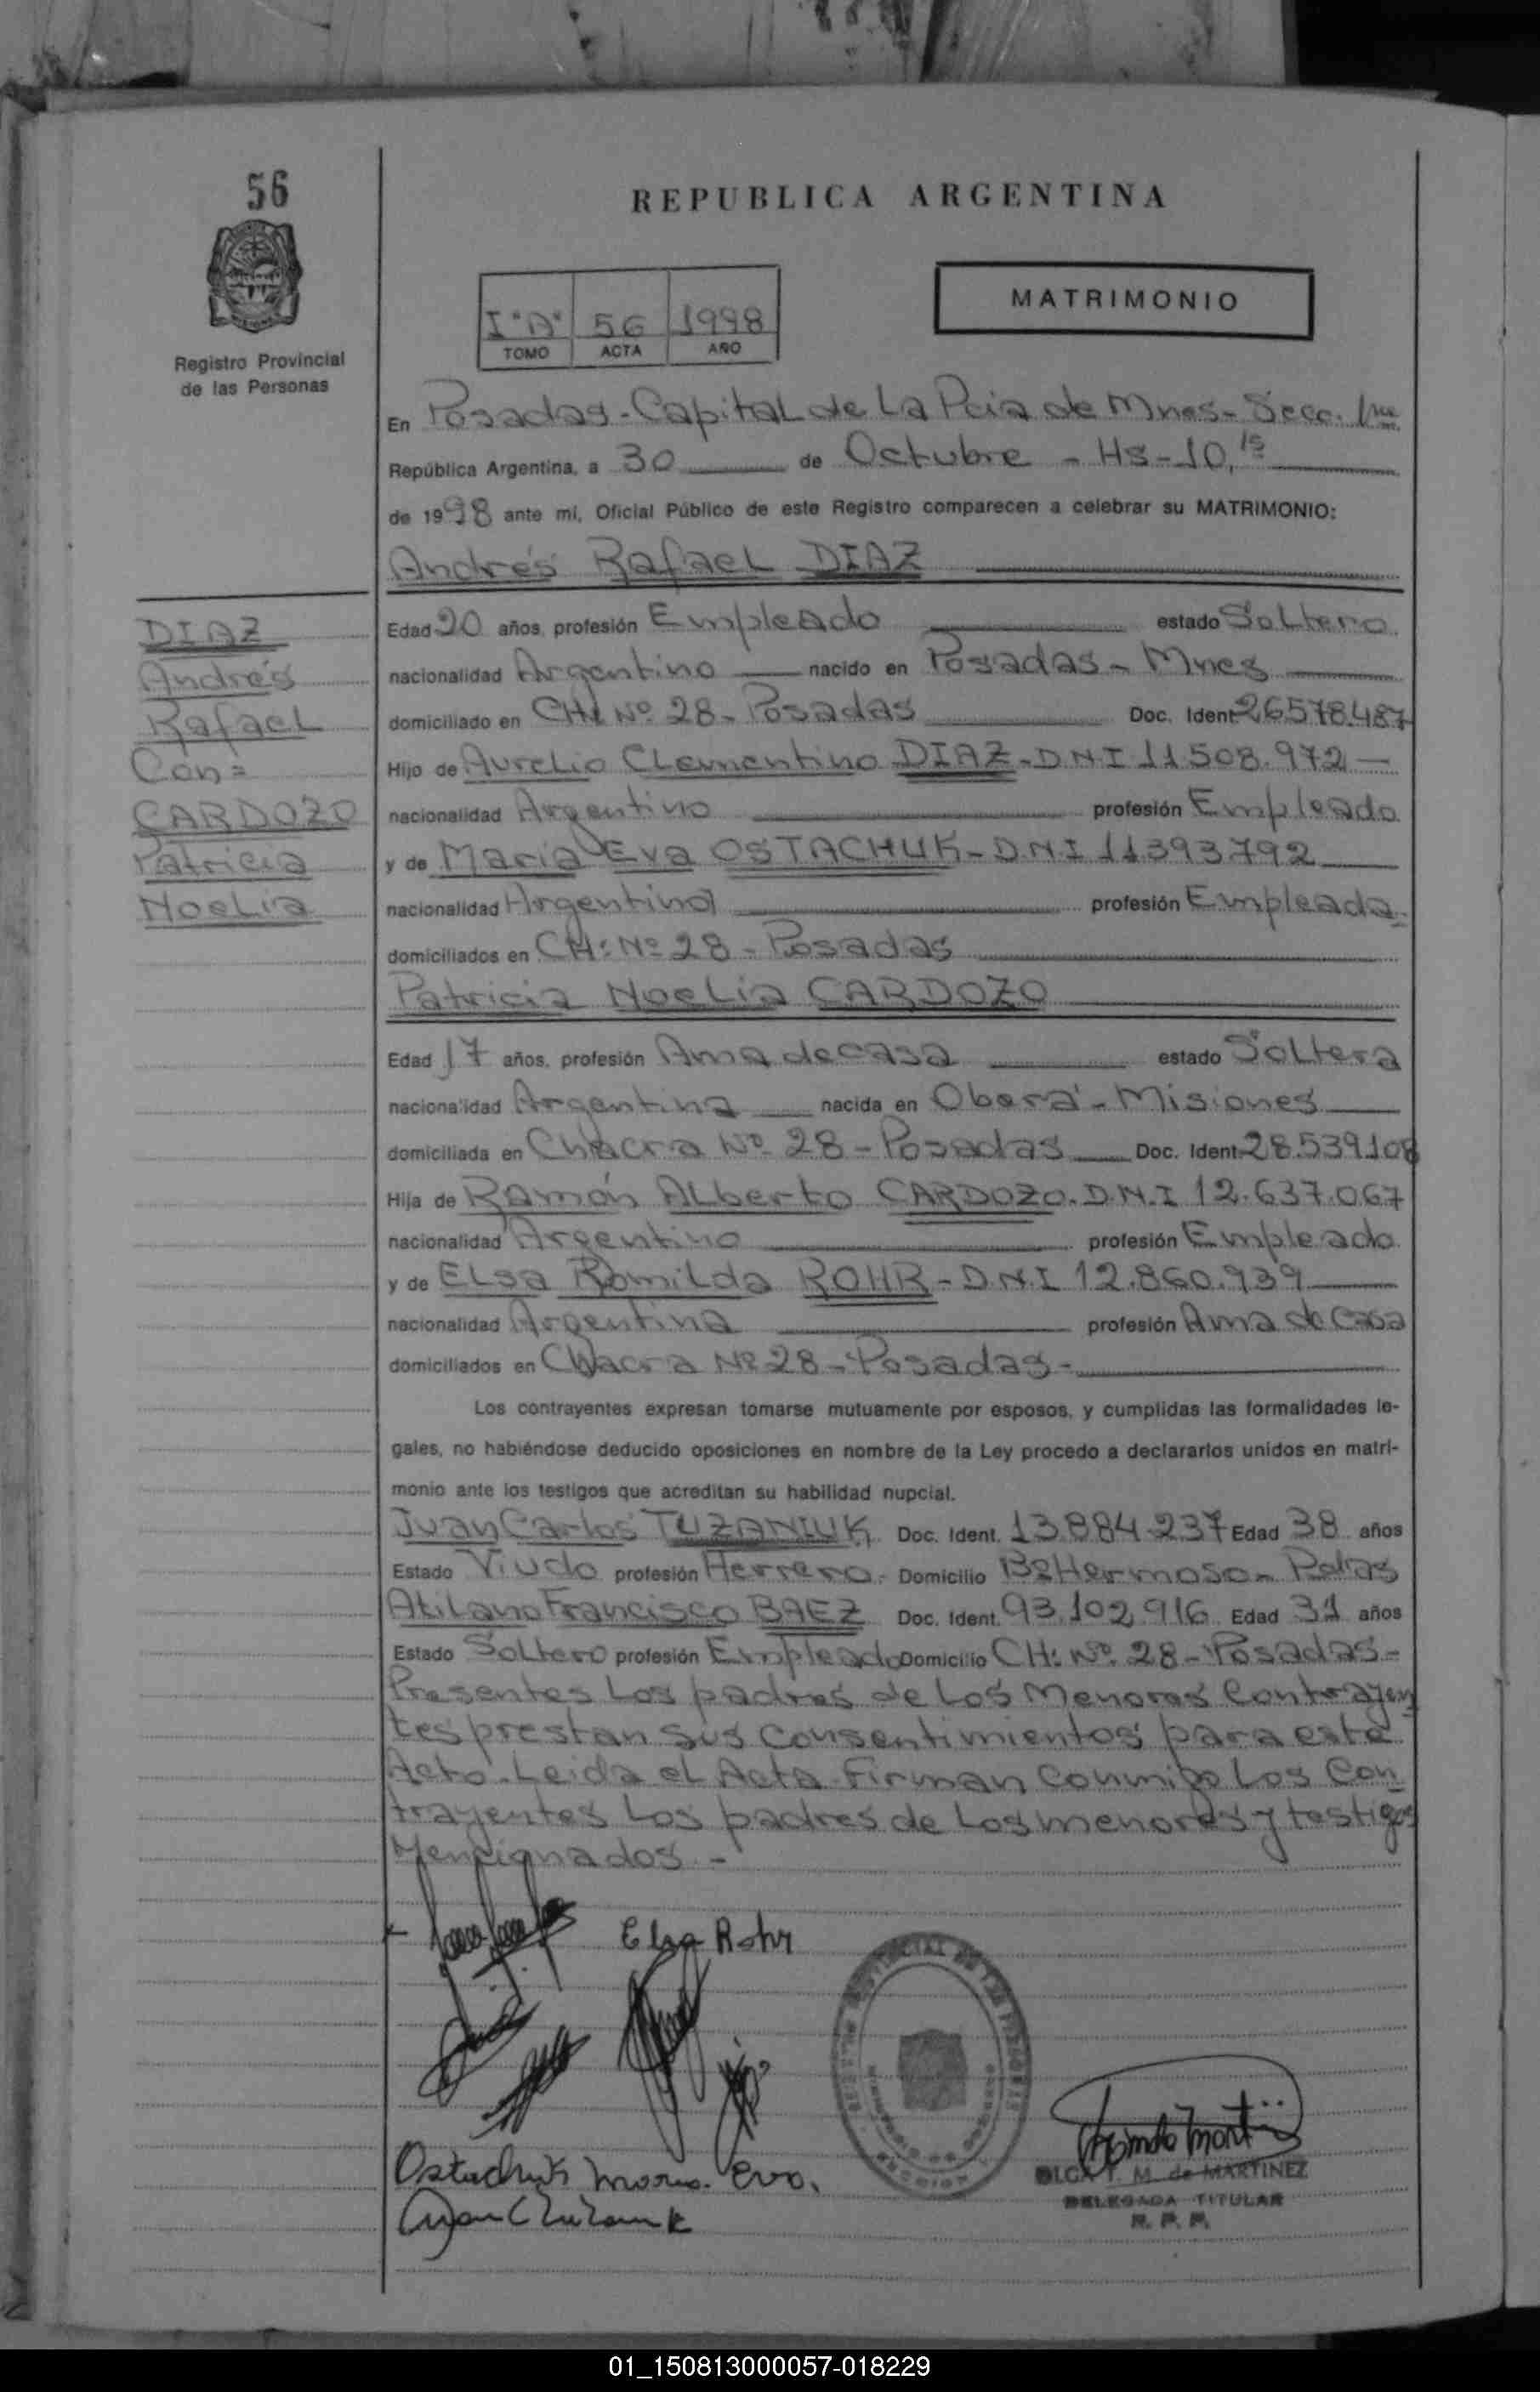 56
REPUBLICA ARGENTINA
MATRIMONIO
I "A" 56 1998
TOMO ACTA AÑO
Registro Provincial
de las Personas
En Posadas - Capital de La Pcia de Mnes - Secc. 1ra
República Argentina, a 30 de Octubre - Hs - 10,15
de 1998 ante mi, Oficial Público de este Registro comparecen a celebrar su MATRIMONIO:
Andrés Rafael DIAZ
DIAZ
Andrés
Rafael
Con=
CARDOZO
Patricia
Noelia
Edad 20 años, profesión Empleado estado Soltero
nacionalidad Argentino nacido en Posadas - Mnes
domiciliado en CH: Nº 28 - Posadas Doc. Ident 26578.487
Hijo de Aurelio Clementino DIAZ - D.N.I. 11.508.972 -
nacionalidad Argentino profesión Empleado
y de María Eva OSTACHUK - D.N.I 11393.792
nacionalidad Argentina profesión Empleada -
domiciliados en CH: Nº 28 - Posadas
Patricia Noelia CARDOZO
Edad 17 años, profesión Ama de casa estado Soltera
nacionalidad Argentina nacida en Oberá - Misiones
domiciliada en Chacra Nº 28 - Posadas Doc. Ident. 28.539.108
Hija de Ramón Alberto CARDOZO - D.N.I 12.637.067
nacionalidad Argentino profesión Empleado
y de Elsa Romilda ROHR - D.N.I 12.860.939
nacionalidad Argentina profesión Ama de Casa
domiciliados en Chacra Nº 28 - Posadas -
Los contrayentes expresan tomarse mutuamente por esposos, y cumplidas las formalidades le-
gales, no habiéndose deducido oposiciones en nombre de la Ley procedo a declararlos unidos en matri-
monio ante los testigos que acreditan su habilidad nupcial.
Juan Carlos TUZANIUK Doc. Ident. 13.884.237 Edad 38 años
Estado Viudo profesión Herrero - Domicilio Bº Hermoso - Pdas
Atilano Francisco BAEZ Doc. Ident. 93.102.916 Edad 31 años
Estado Soltero profesión Empleado Domicilio CH: Nº 28 - Posadas -
Presentes Los padres de Los Menores Contrayen
tes prestan sus consentimientos para este
Acto - Leida el Acta Firman conmigo Los Con
trayentes Los padres de Los menores y testigos
Mencionados -
Elsa Rohr
Ostachuk Maria Eva.
OLGA T. M. de MARTINEZ
DELEGADA TITULAR
R. P. P.
01_150813000057-018229